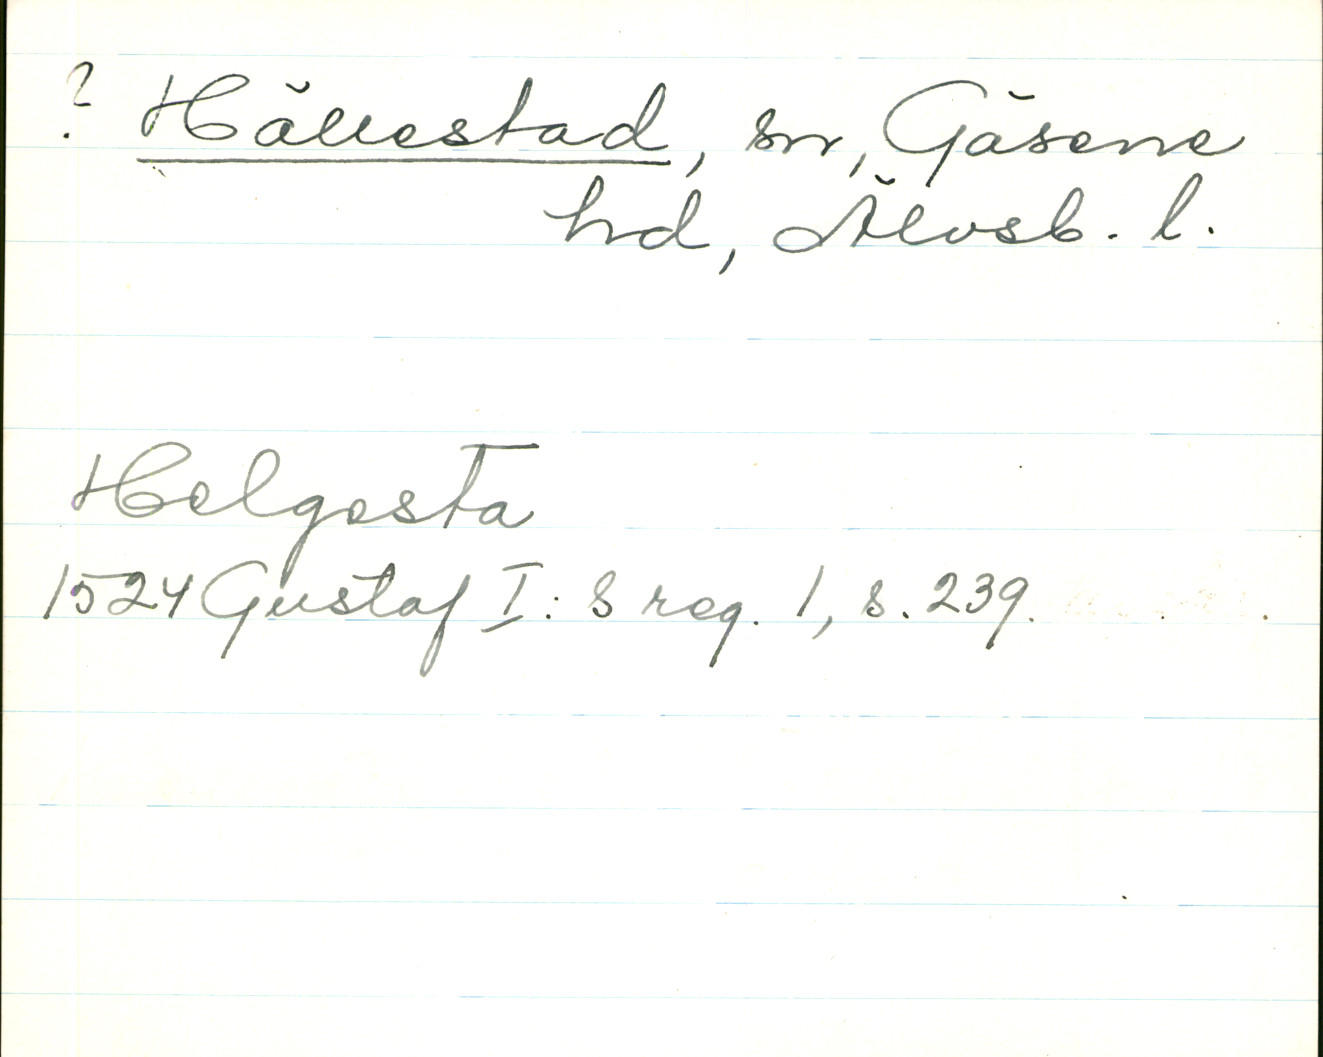 ? Hällestad, sn, Gäsene
hd, Älvsb. l.
Helgesta
1524 Gustaf I: s reg. 1, s. 239.